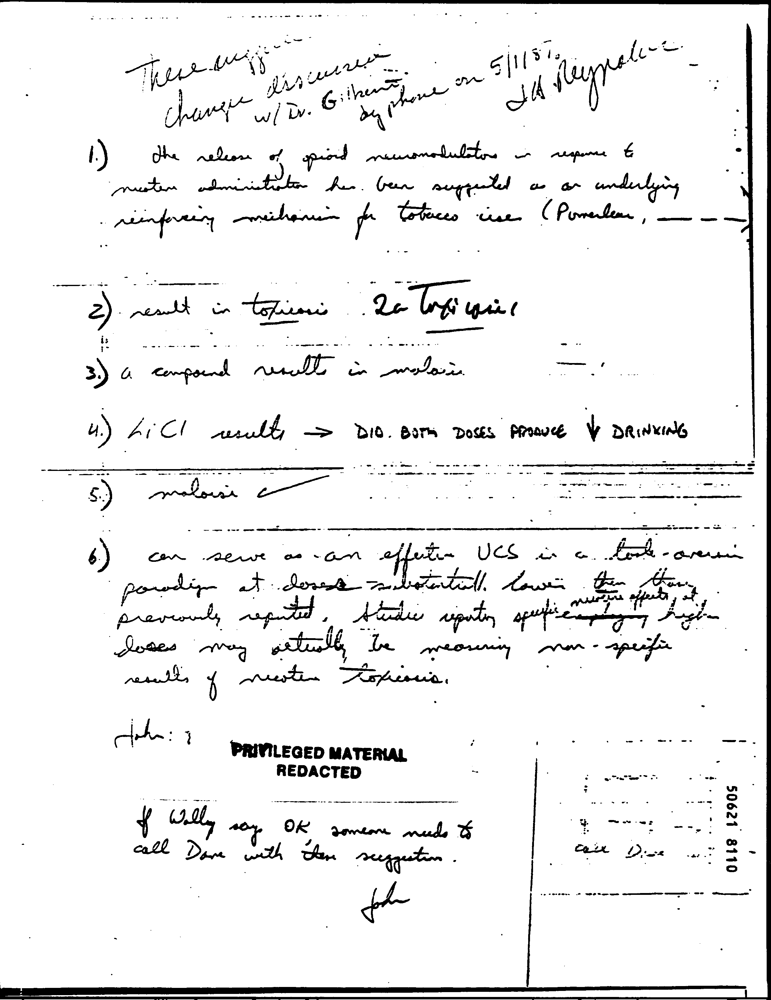 These
change discussed
w/ Dr. Gilbert
by phone on 5/11/87.
JH Reynolds
1.) The release of opioid neuromodulators in response to
nicotine administration has been suggested as an underlying
reinforcing mechanism for tobacco use (Pomerleau,
2) result in toxicosis 2a
3.) a compound results in malaise
4.) LiCl results → DID. BOTH DOSES PRODUCE ↓ DRINKING
5.) malaise
6.) can serve as an effective UCS in a taste-aversion
paradigm at doses substantially lower than
previously reported. Studies reporting specific nicotine effects at high
doses may actually be measuring non-specific
results of nicotine toxicosis.
John:
PRIVILEGED MATERIAL
REDACTED
If Wally says OK, someone needs to
call Dave with these suggestions.
John
call Dave
50621 8110